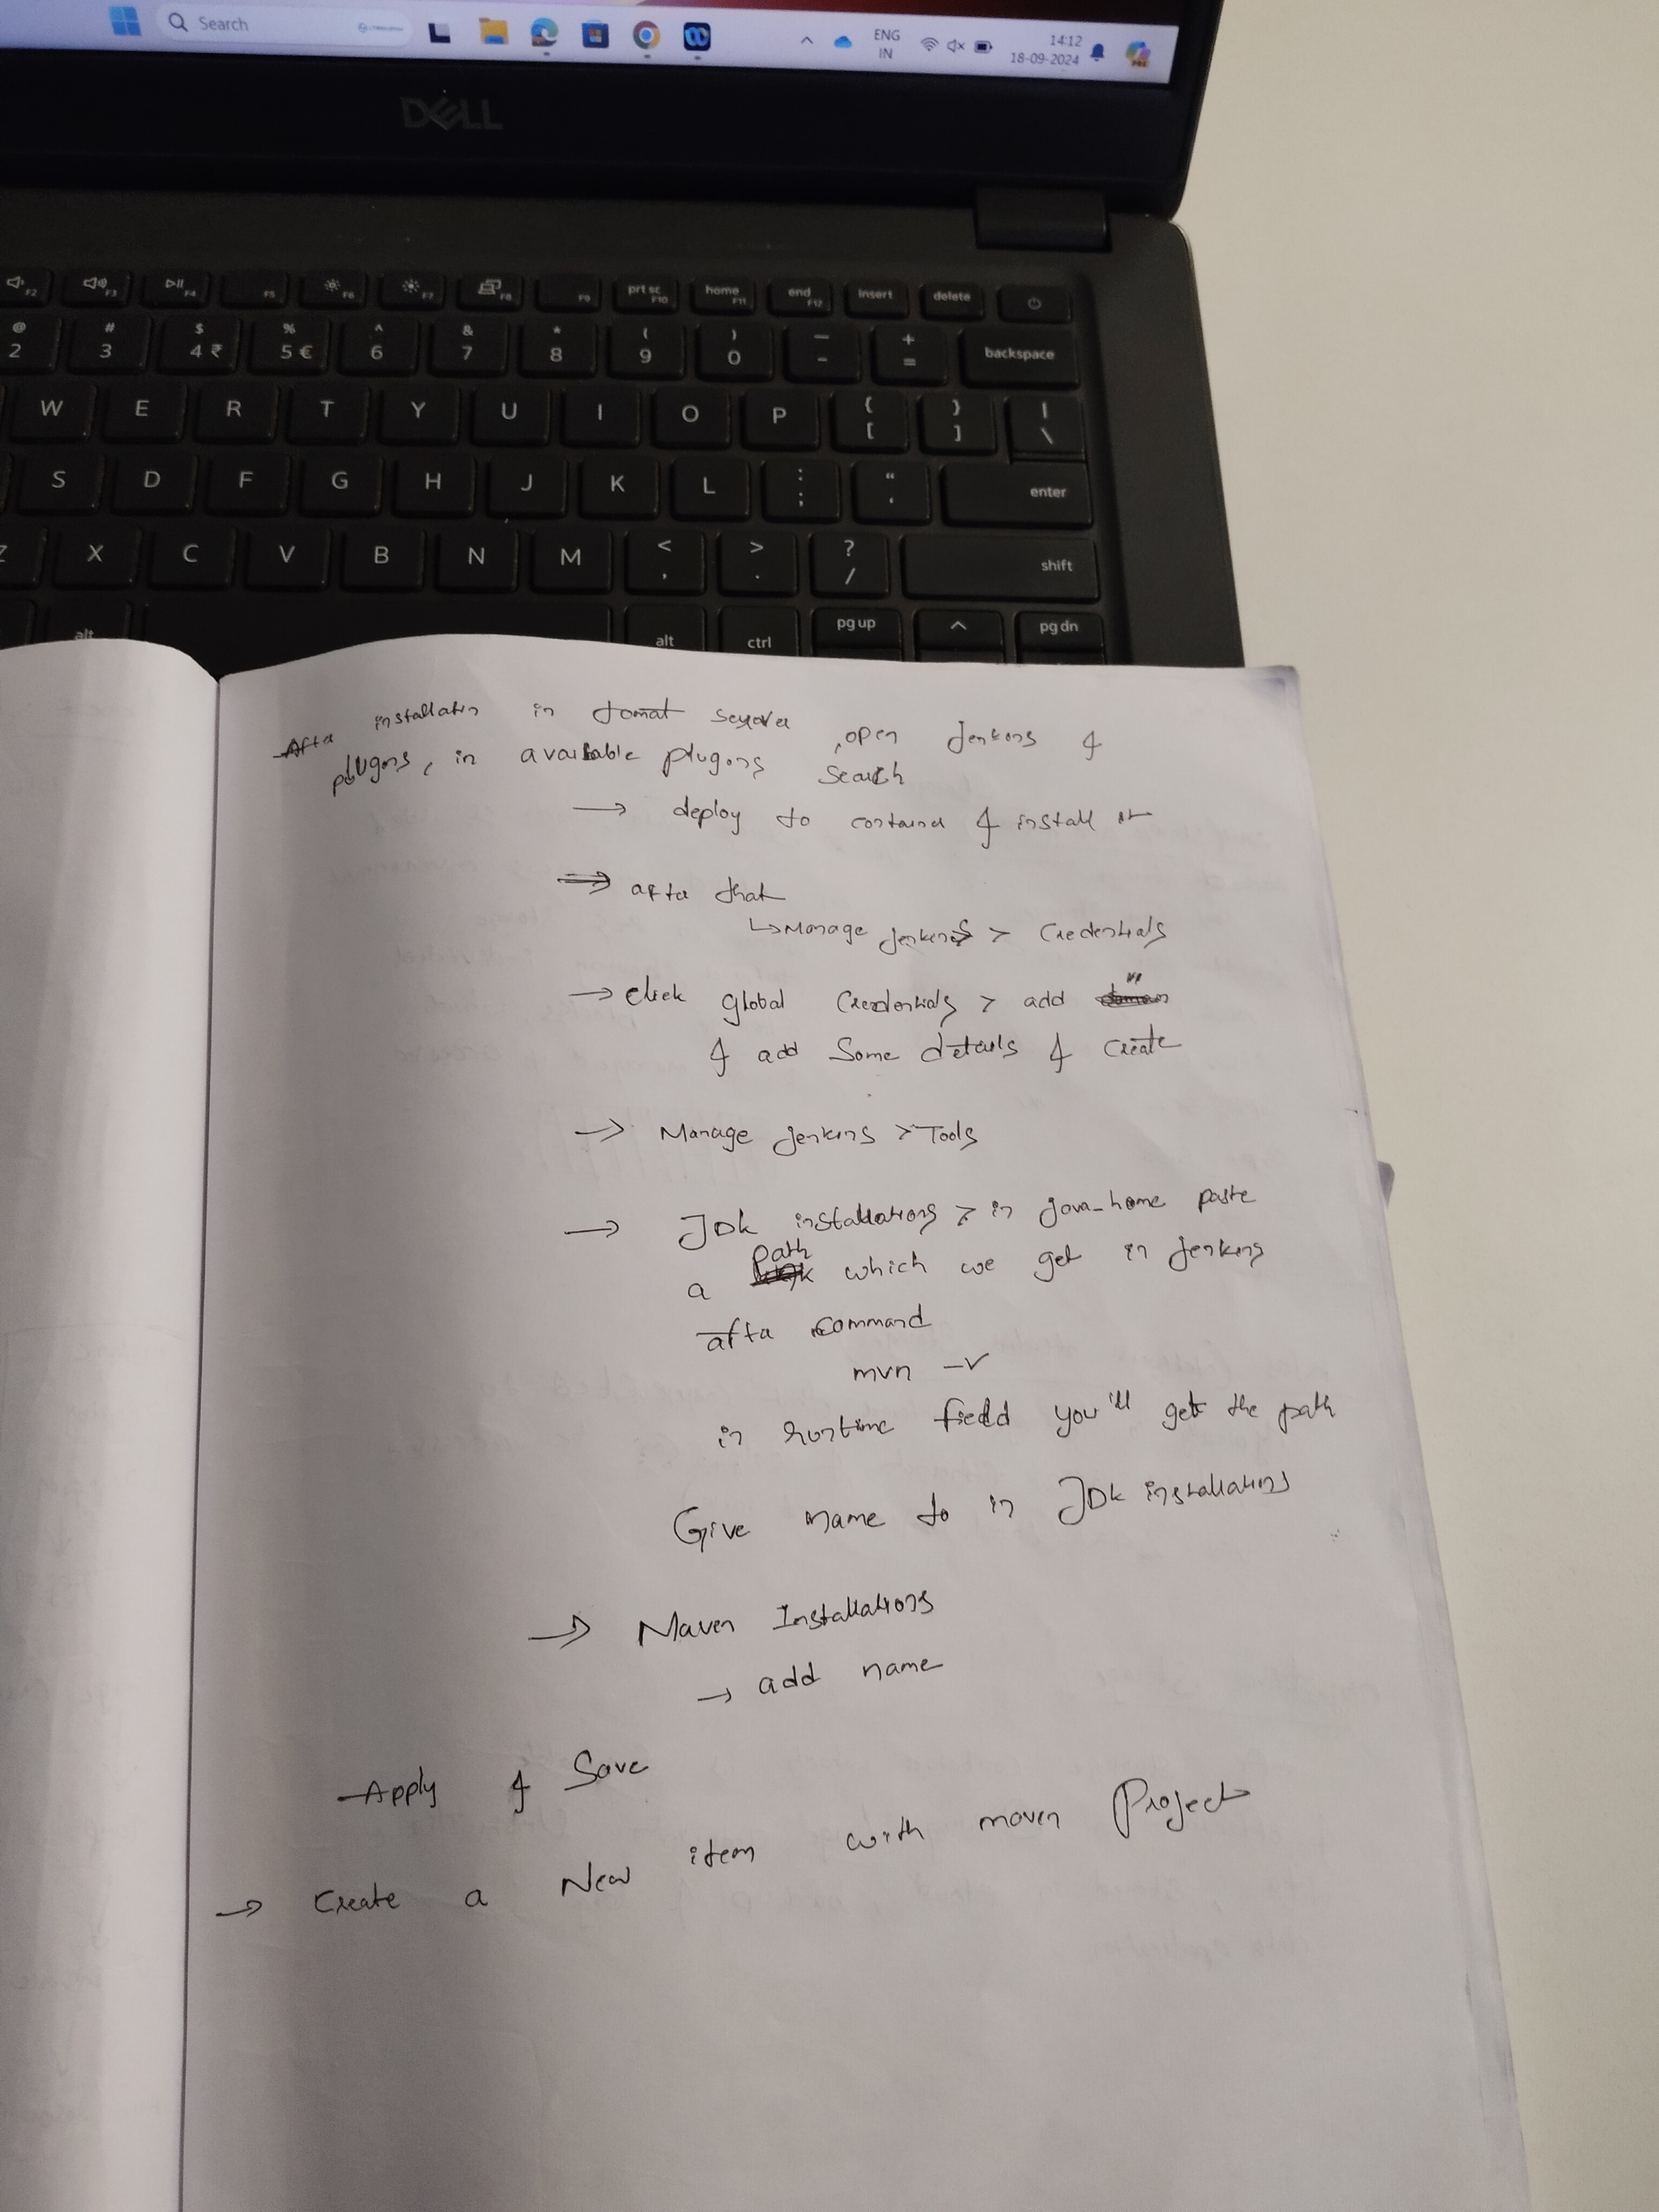 Search
ENG
IN
14:12
18-09-2024
DELL
F2 F3 F4 F5 F6 F7 F8 F9 prt sc F10 home F11 end F12 insert delete
@ 2 # 3 $ 4 ₹ % 5 € ^ 6 & 7 * 8 ( 9 ) 0 _ - + = backspace
W E R T Y U I O P { [ } ] | \
S D F G H J K L : ; " ' enter
Z X C V B N M < , > . ? / shift
alt alt ctrl pg up ^ pg dn
After installation in tomat server, open Jenkins &
plugons, in available plugons search
→ deploy to container & install it
⇒ after that
↳ Manage Jenkins > Credentials
→ click global Credentials > add
& add Some details & create
→ Manage Jenkins > Tools
→ JDK installations > in java_home paste
a path which we get in Jenkins
after command
mvn -v
in runtime field you'll get the path
Give name to in JDK installations
→ Maven Installations
→ add name
Apply & Save
→ Create a New item with maven Project